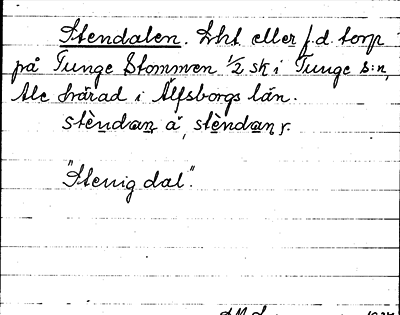 Stendalen. Lht eller f.d. torp
på Tunge Stommen 1/2 sk i Tunge s:n,
Ale härad i Älfsborgs län.
stèndan a, stèndan y.
"Stenig dal".